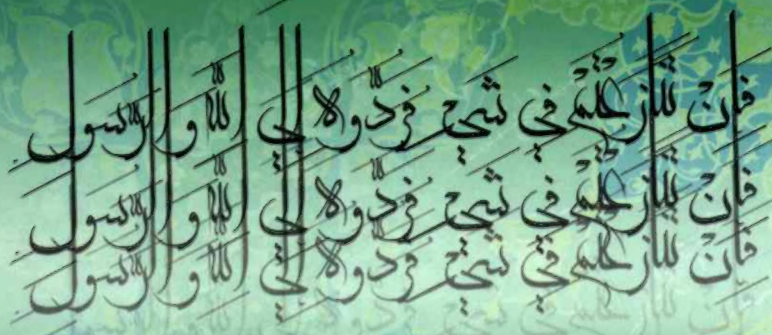 فَاِنْ تَنَازَعْتُمْ فِي شَيْءٍ فَرُدُّوهُ اِلَي اللّٰهِ وَ الرَّسُول
فَاِنْ تَنَازَعْتُمْ فِي شَيْءٍ فَرُدُّوهُ اِلَي اللّٰهِ وَ الرَّسُول
فَاِنْ تَنَازَعْتُمْ فِي شَيْءٍ فَرُدُّوهُ اِلَي اللّٰهِ وَ الرَّسُول